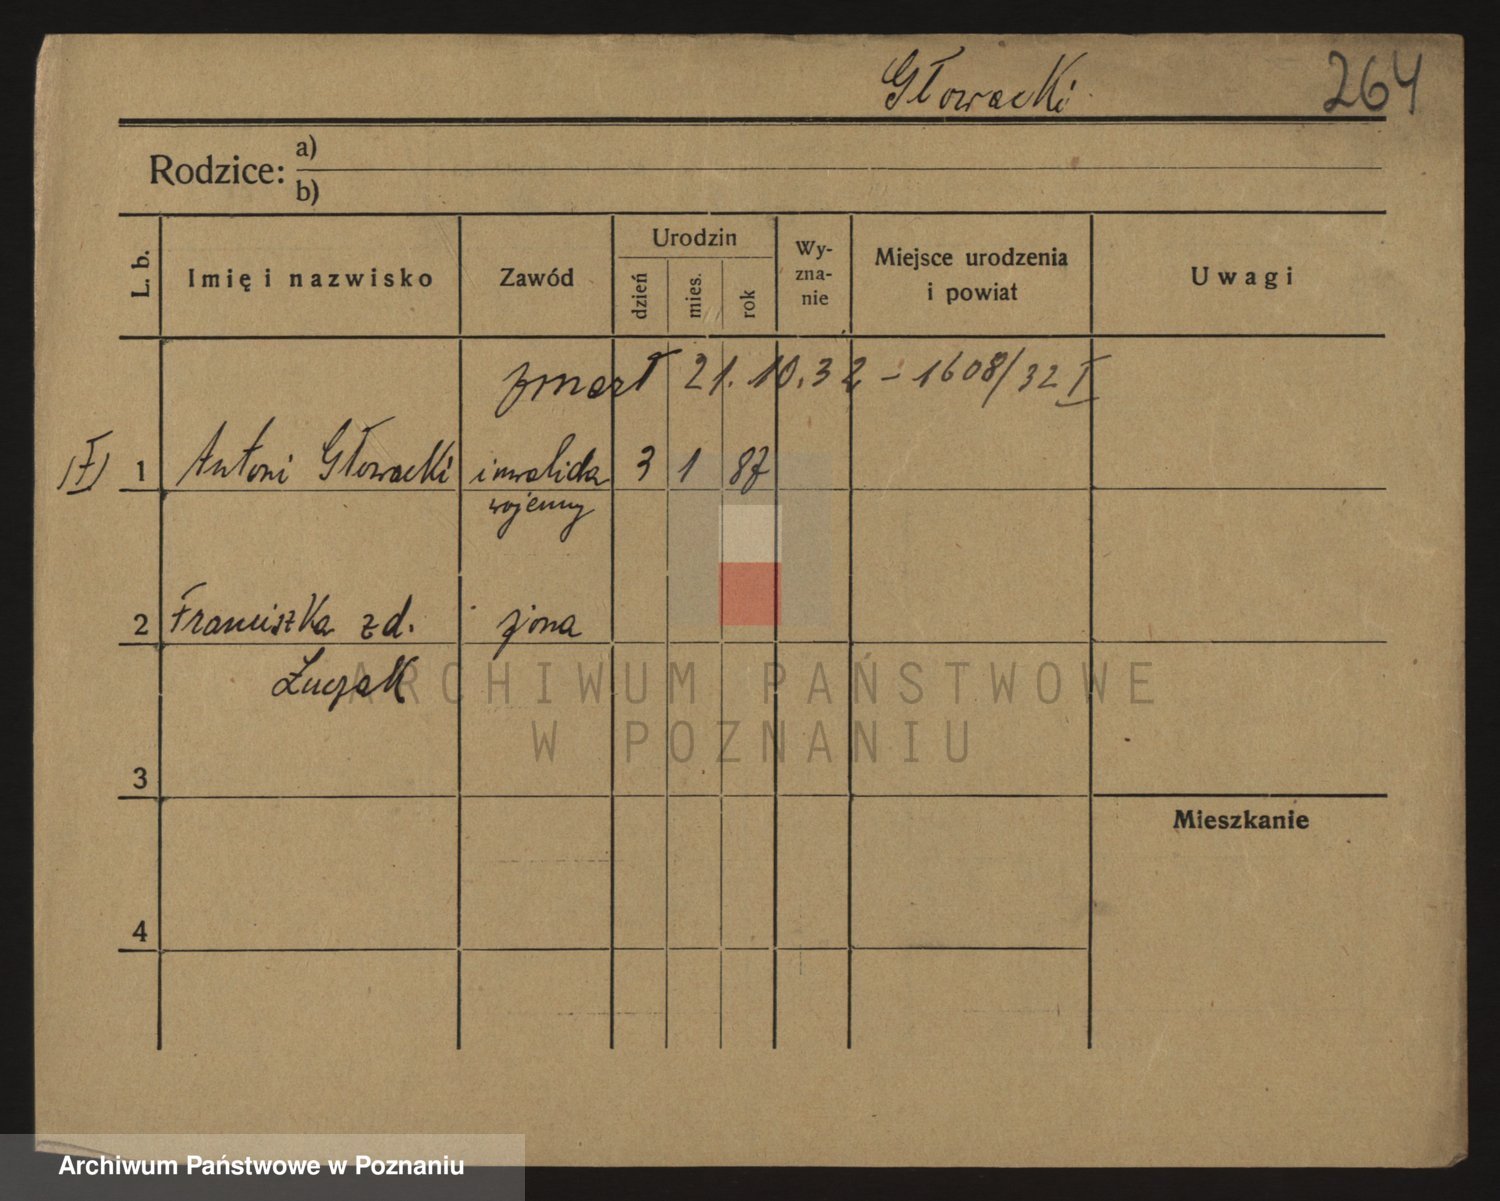 Głowacki 264
Rodzice: a)
b)
L. b.
Imię i nazwisko
Zawód
Urodzin
dzień
mies.
rok
Wy-
zna-
nie
Miejsce urodzenia
i powiat
Uwagi
zmarł 21.10.32 – 1608/32 I
1 Antoni Głowacki inwalida 3 1 87
wojenny
2 Franciszka z d. żona
Łuczak
ARCHIWUM PAŃSTWOWE
W POZNANIU
3
Mieszkanie
4
Archiwum Państwowe w Poznaniu